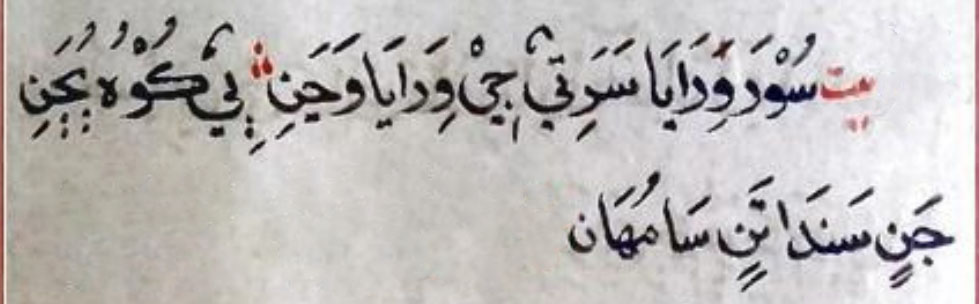 بيت سُوْدَ وِدَايَا سَرَتِيْ جِيْ وِدَايَا وَجَنِ ؞ پِيْ كُوْہُ يُجَنِ
جَنٍ سَنَدَا تَنٍ سَامُهَان